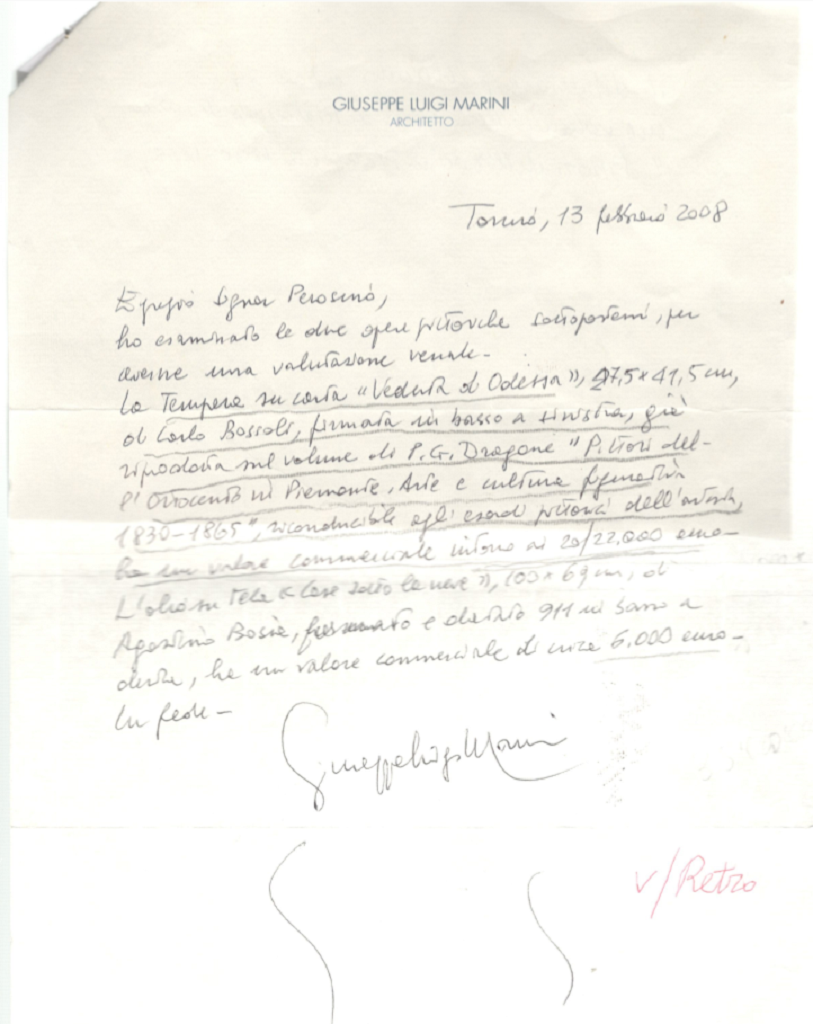 GIUSEPPE LUIGI MARINI
ARCHITETTO
Torino, 13 febbraio 2008
Egregio Signor Perosino,
ho esaminato le due opere pittoriche sottopostemi, per
averne una valutazione venale -
La Tempera su carta "Veduta di Odessa", 27,5 x 41,5 cm,
di Carlo Bossoli, firmata in basso a sinistra, già
riprodotta sul volume di P.G. Dragone "Pittori del-
l'Ottocento in Piemonte. Arte e cultura figurativa
1830-1865", riconducibile agli esordi pittorici dell'artista,
ha un valore commerciale intorno ai 20/22.000 euro -
L'olio su tela "Case sotto la neve", 100 x 69 cm, di
Agostino Bosia, firmato e datato 911 in basso a
destra, ha un valore commerciale di circa 6.000 euro -
In fede -
Giuseppe Luigi Marini
v/Retro